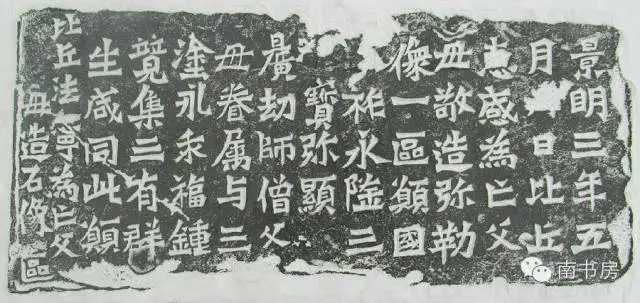 景明三年五
月卅日比丘
惠感為亡父
母敬造弥勒
像一區願國
祚永隆三
寶弥顯
曠劫師僧父
母眷属与三
塗永乖福鍾
競集三有群
生咸同此願
比丘法寧為亡父
母造石像區
南书房